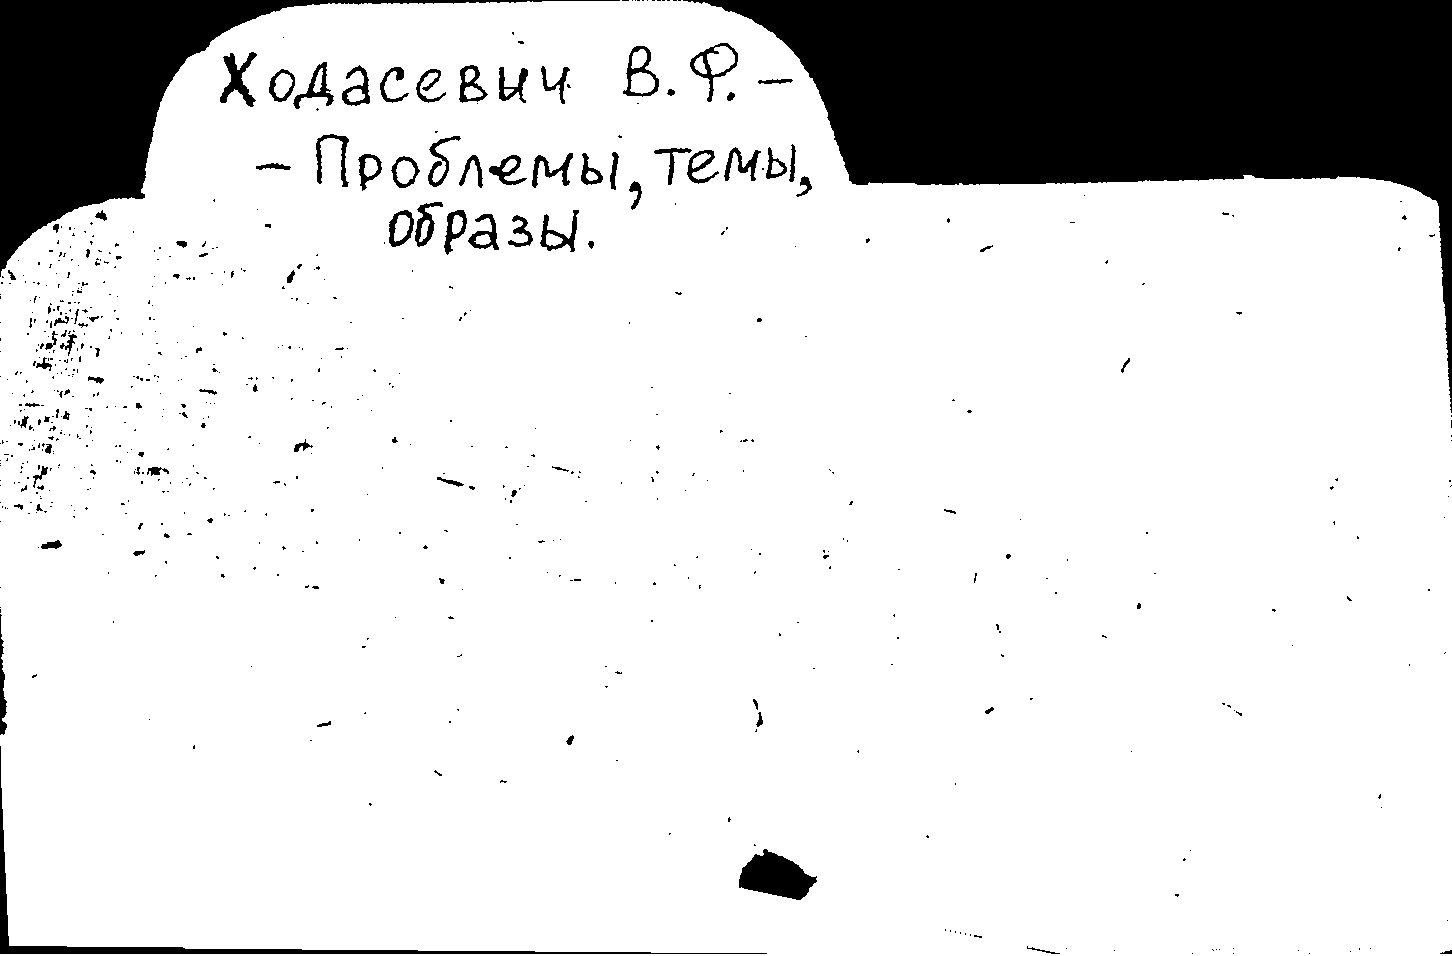 Ходасевич В.Ф. –
– Проблемы, темы,
образы.